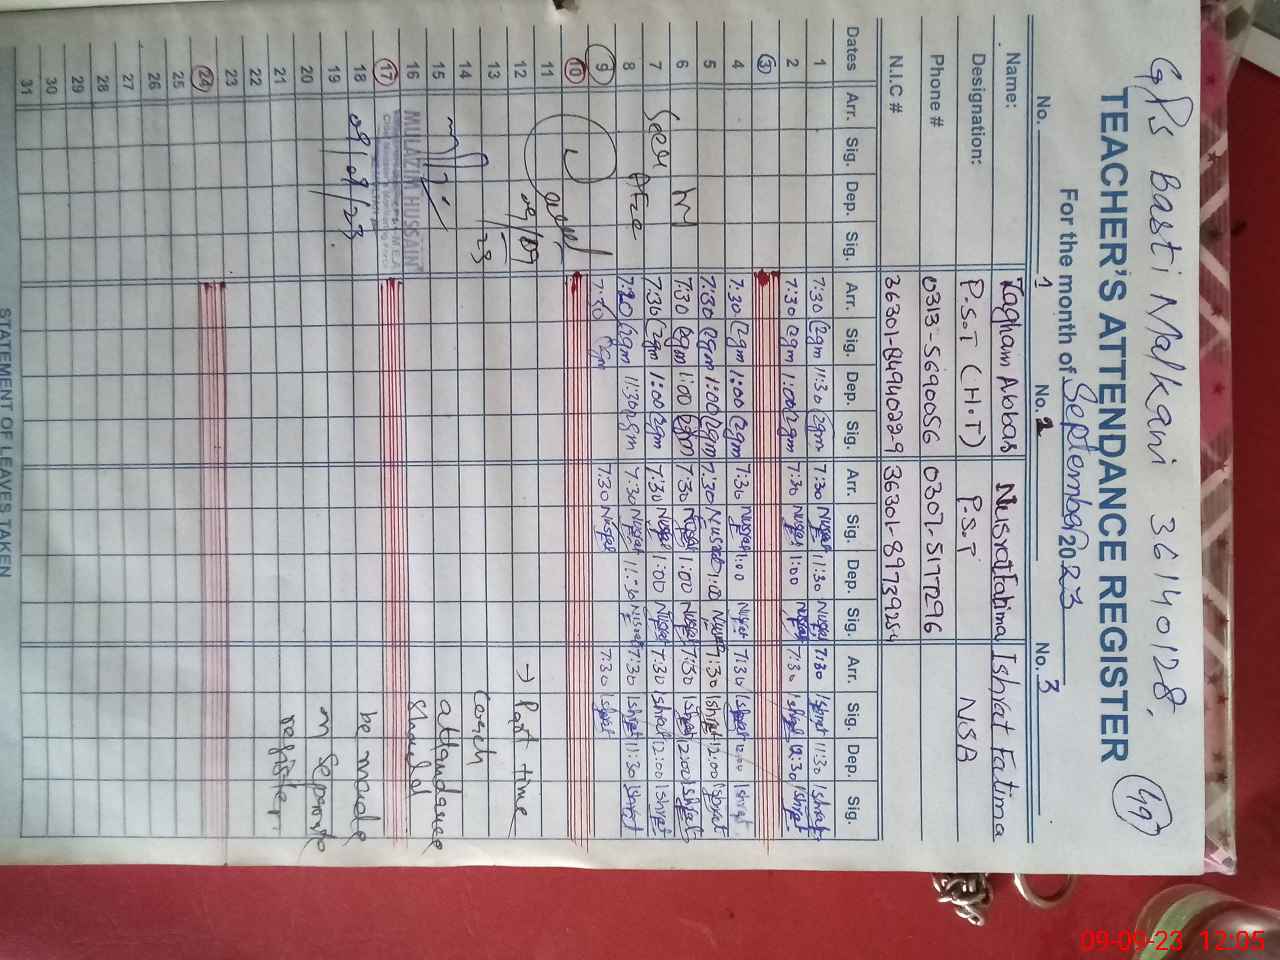 GPS Basti Malkani 36140128.
TEACHER'S ATTENDANCE REGISTER
For the month of September 2023
No. 1 No. 2 No. 3
Name: Zagham Abbas Nusrat Fatima Ishrat Fatima
Designation: P.S.T (H.T) P.S.T NSB
Phone # 0313-5690056 0307-5177296
N.I.C # 36301-8494022-9 36301-8973925-4
Dates Arr. Sig. Dep. Sig. Arr. Sig. Dep. Sig. Arr. Sig. Dep. Sig. Arr. Sig. Dep. Sig.
1 7:30 Zgm 11:30 Zgm 7:30 Nusrat 11:30 Nusrat 7:30 Ishrat 11:30 Ishrat
2 7:30 Zgm 1:00 Zgm 7:30 Nusrat 1:00 Nusrat 7:30 Ishrat 12:30 Ishrat
3
4 7:30 Zgm 1:00 Zgm 7:30 Nusrat 1:00 Nusrat 7:30 Ishrat 12:00 Ishrat
5 7:30 Zgm 1:00 Zgm 7:30 Nusrat 1:00 Nusrat 7:30 Ishrat 12:00 Ishrat
6 7:30 Zgm 1:00 Zgm 7:30 Nusrat 1:00 Nusrat 7:30 Ishrat 12:00 Ishrat
7 Seen 7:30 Zgm 1:00 Zgm 7:30 Nusrat 1:00 Nusrat 7:30 Ishrat 12:00 Ishrat
8 7:30 Zgm 11:30 Zgm 7:30 Nusrat 11:30 Nusrat 7:30 Ishrat 11:30 Ishrat
9 7:30 Zgm 7:30 Nusrat 7:30 Ishrat
10
11
12 09/09 → Part time
13 23
14 Coach
15 attandance
16 MULAZIM HUSSAIN should
17
18 09/09/23 be made
19
20 in seperate
21 register.
22
23
24
25
26
27
28
29
30
31
STATEMENT OF LEAVES TAKEN
09-09-23 12:05